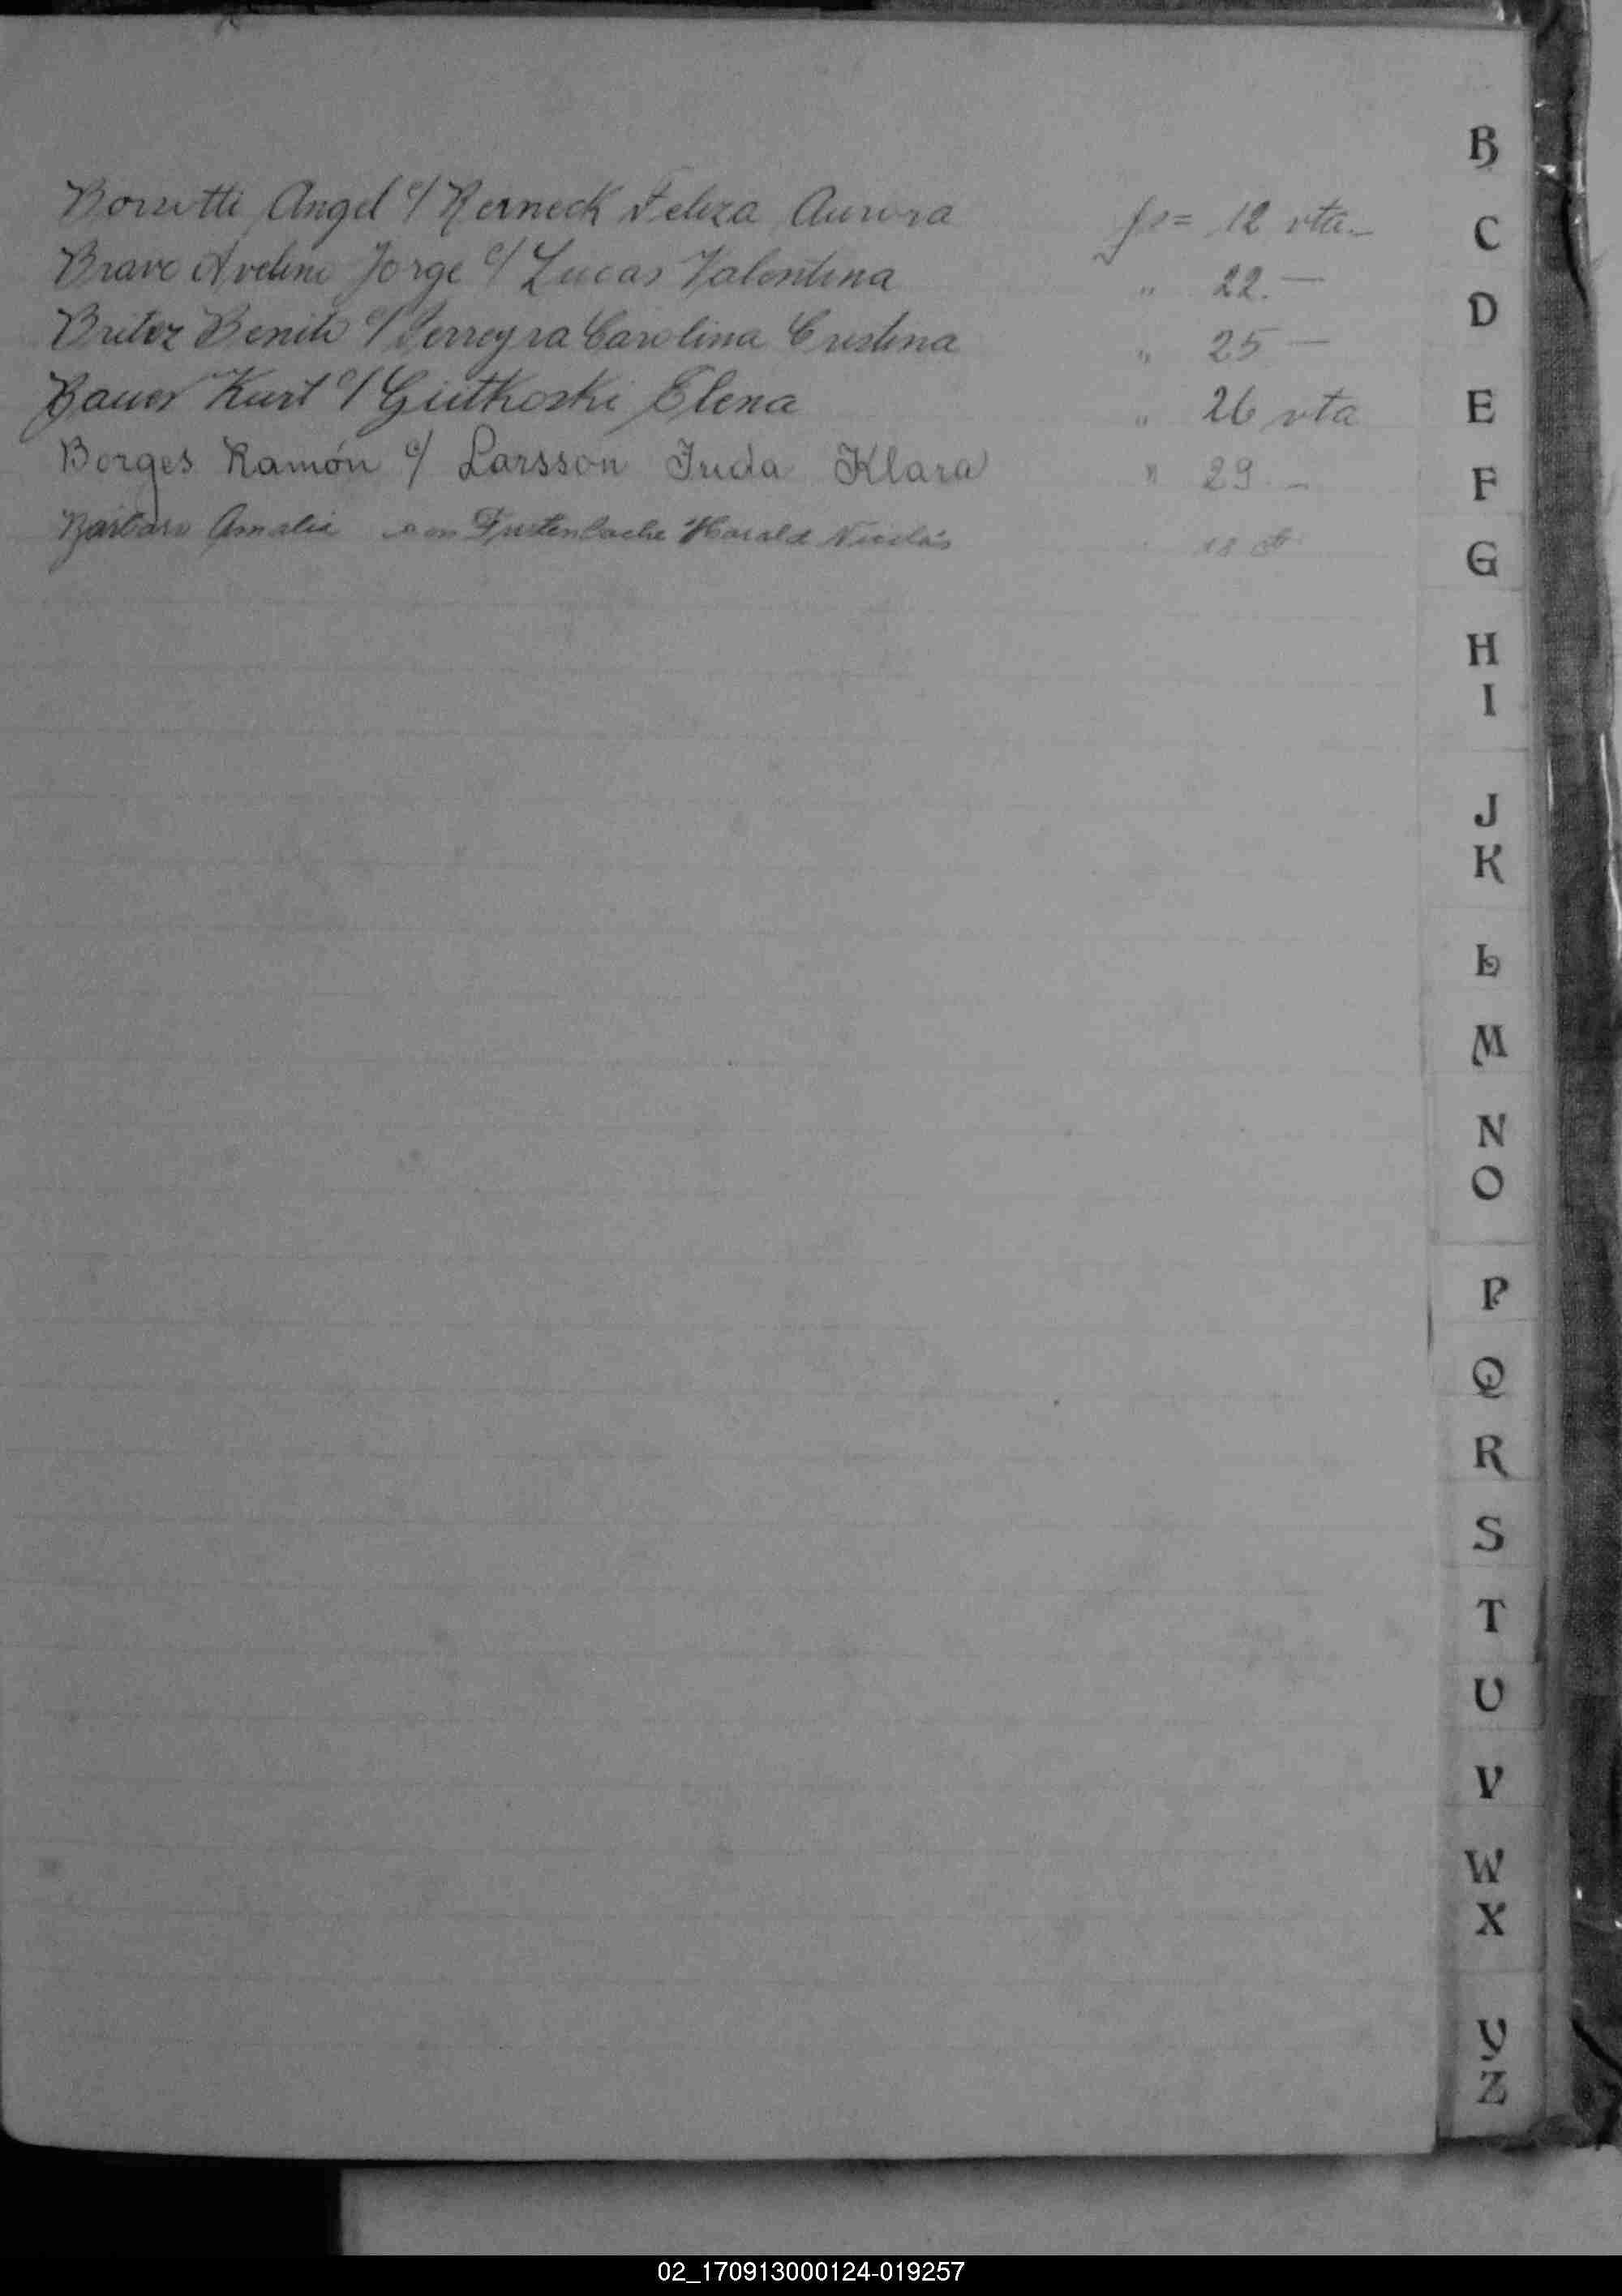 B
Angel c/ Kerneck Feliza Aurora fs= 12 vta.-
C
Bravo Avelino Jorge c/ Lucas Valentina " 22.—
D
Britez Benito c/ Perreyra Carolina Cristina " 25 —
E
Bauer Kurt c/ Giutkoski Elena " 26 vta
Borges Ramón c/ Larsson Juda Klara " 29.-
F
Barbaro Amalia con Harald Nicolás 18
G
H
I
J
K
L
M
N
O
P
Q
R
S
T
U
V
W
X
Y
Z
02_170913000124-019257